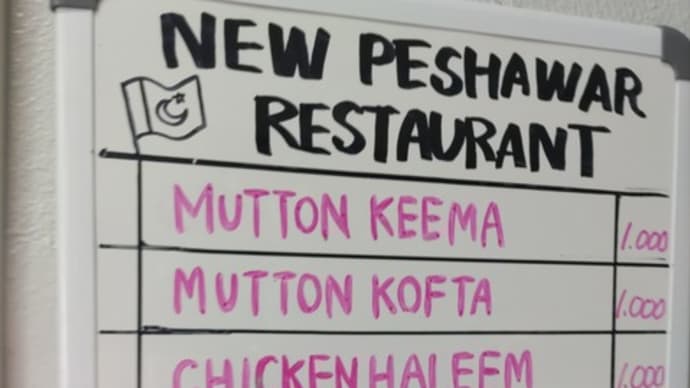 NEW PESHAWAR
RESTAURANT
MUTTON KEEMA 1.000
MUTTON KOFTA 1.000
CHICKEN HALEEM 1.000